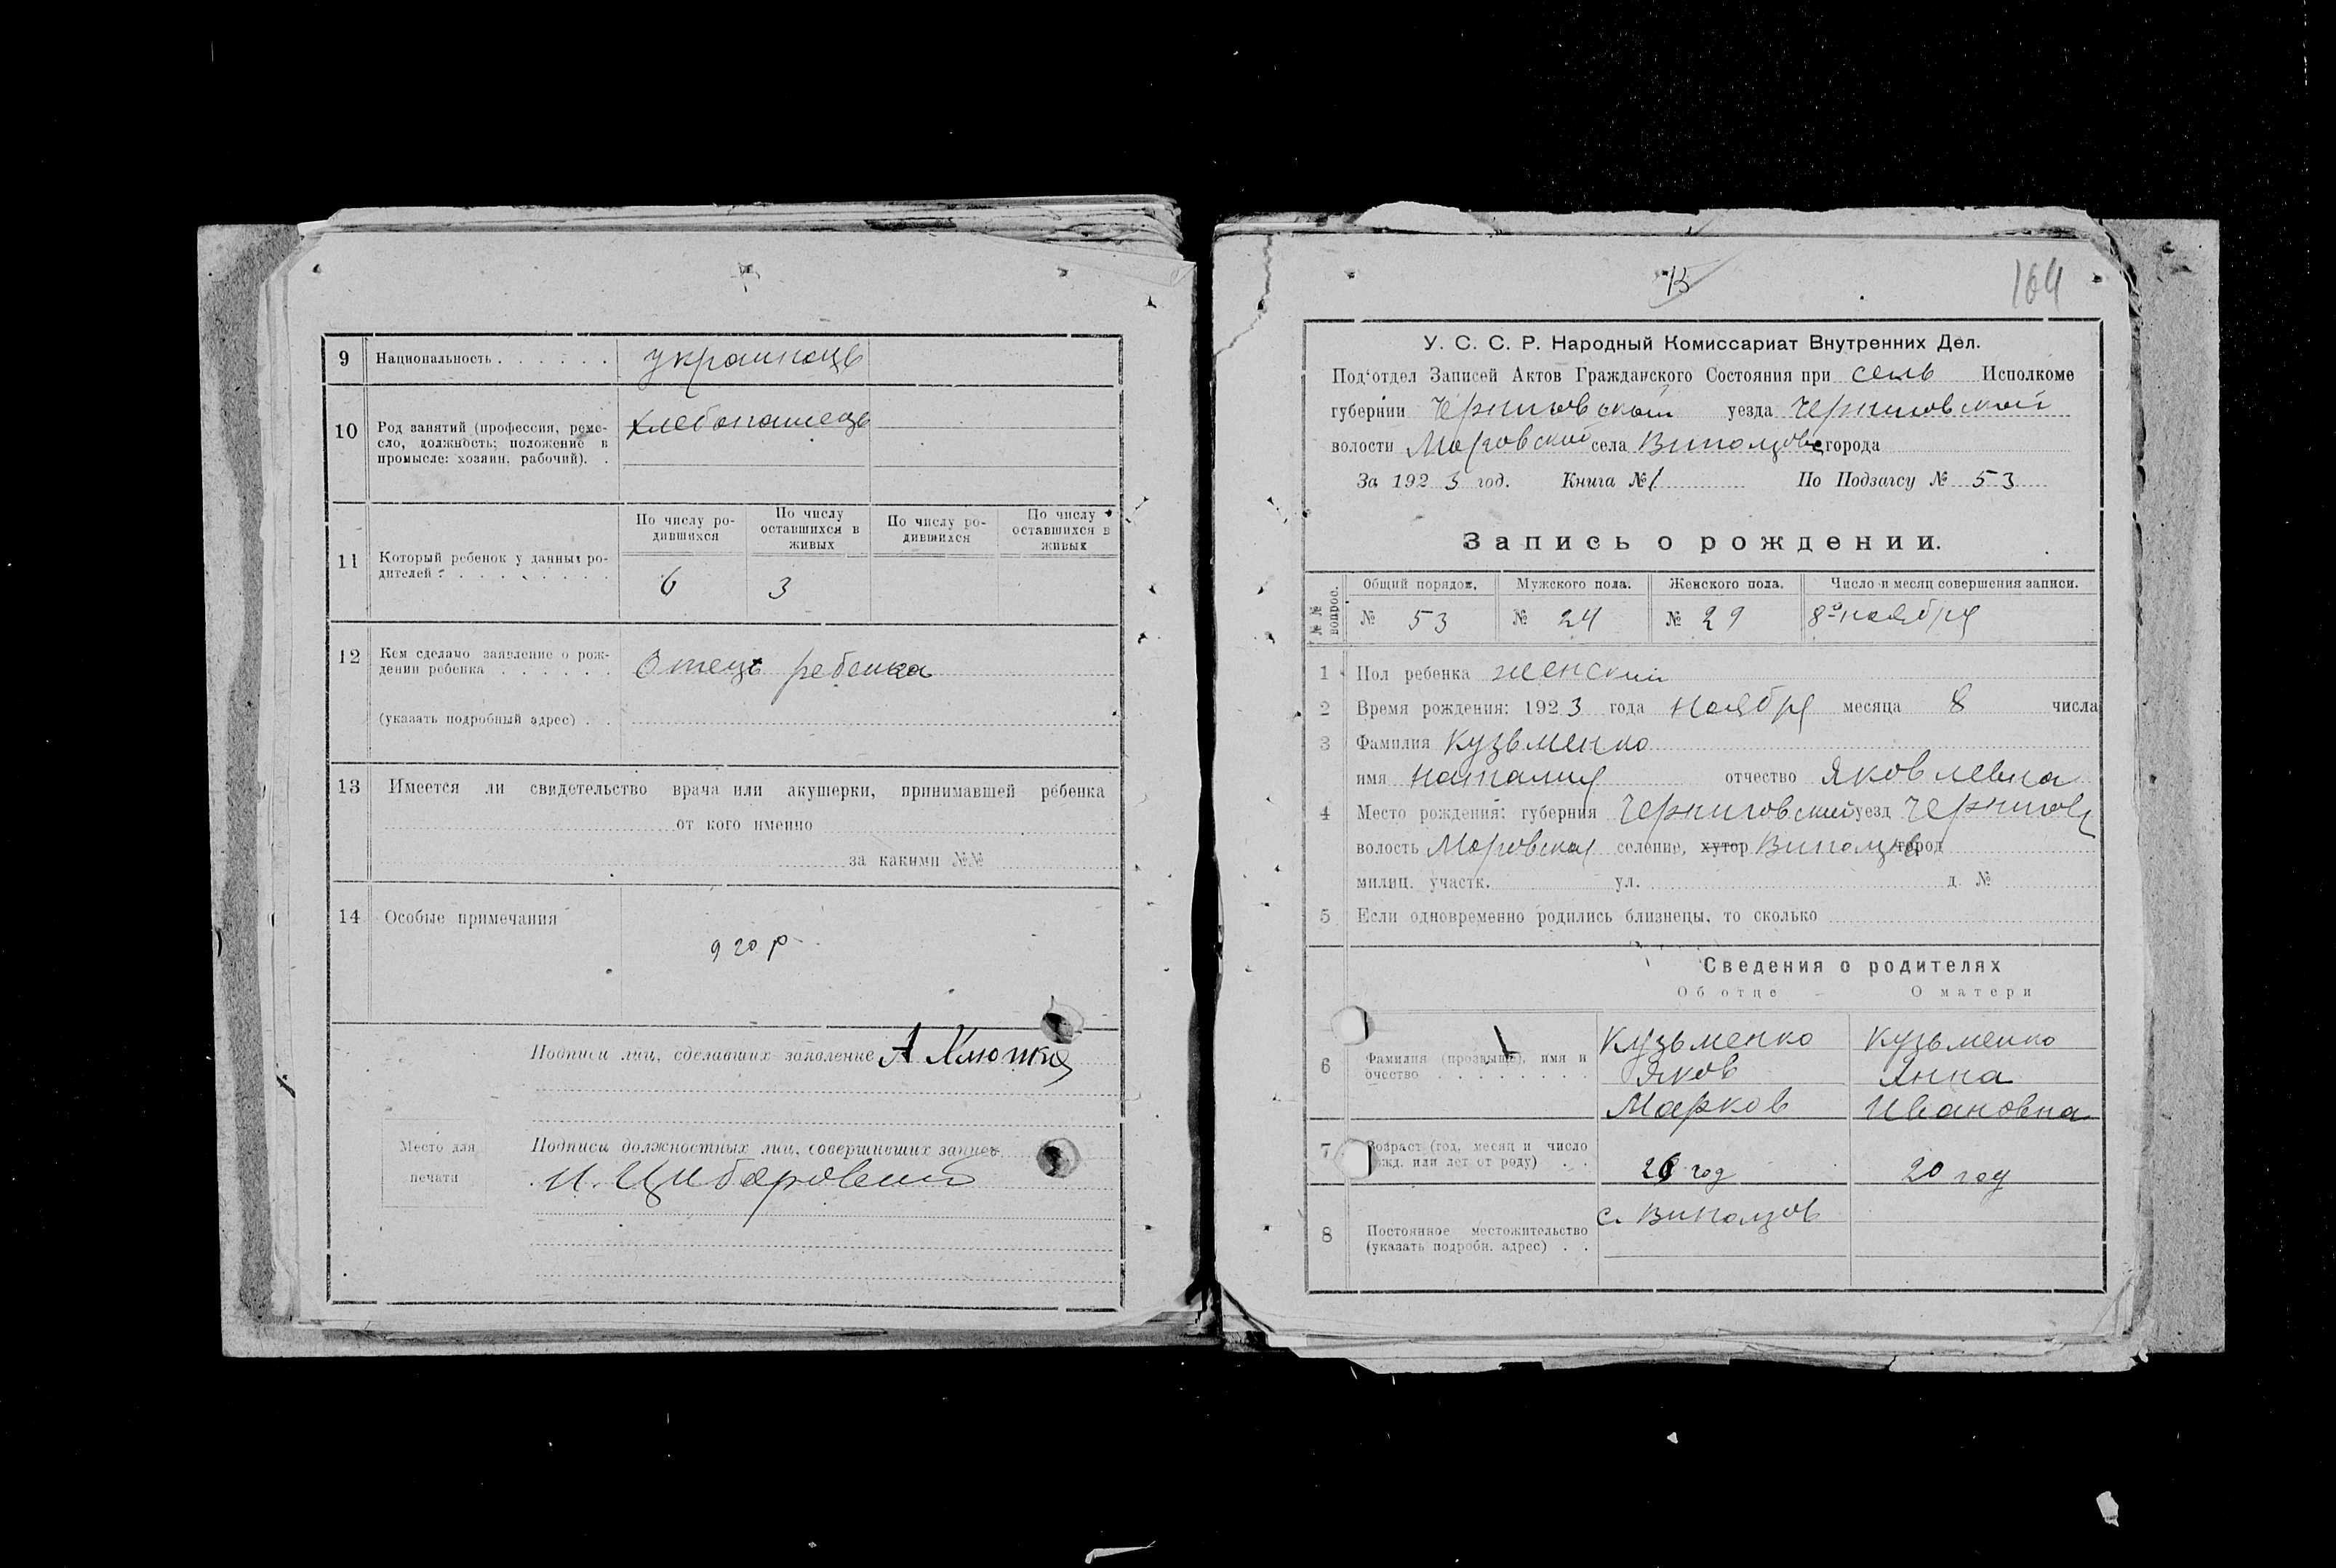 9 Национальность . . . . . . украинецъ
10 Род занятий (профессия, реме-
сло, должность; положение в
промысле: хозяин, рабочий). .
хлебопашецъ
11 Который ребенок у данных ро-
дителей . . . . . . . .
По числу ро-
дившихся
По числу
оставшихся в
живых
По числу ро-
дившихся
По числу
оставшихся в
живых
6 3
12 Кем сделано заявление о рож-
дении ребенка . . . . . . Отець ребенка
(указать подробный адрес) . .
13 Имеется ли свидетельство врача или акушерки, принимавшей ребенка
от кого именно
за какими №№
14 Особые примечания
9 20 р
Подписи лиц, сделавших заявление А
Место для
печати
Подписи должностных лиц, совершивших запись
И. Цибаровский
15
164
У. С. С. Р. Народный Комиссариат Внутренних Дел.
Под'отдел Записей Актов Гражданского Состояния при сель Исполкоме
губернии Черниговской уезда Черниговской
волости Моровской села города
За 1923 год. Книга №1 По Подзагсу № 53
Запись о рождении.
№№ вопрос.
Общий порядок. Мужского пола. Женского пола. Число и месяц совершения записи.
№ 53 № 24 № 29 8го ноября
1 Пол ребенка женский
2 Время рождения: 1923 года ноября месяца 8 числа
3 Фамилия Кузьменко
имя Наталия отчество Яковлевна
4 Место рождения: губерния Черниговский уезд Чернигов
волость Моровская селение, хутор город
милиц. участк. ул. д. №
5 Если одновременно родились близнецы, то сколько
Сведения о родителях
Об отце О матери
6 Фамилия (прозвище), имя и
очество . . . . . . . .
Кузьменко Кузьменко
Яков Анна
Марков Ивановна
7 Возраст (год, месяц и число
рожд. или лет от роду) . .
26 год 20 год
8 Постоянное местожительство
(указать подробн. адрес) . .
с. Виползов